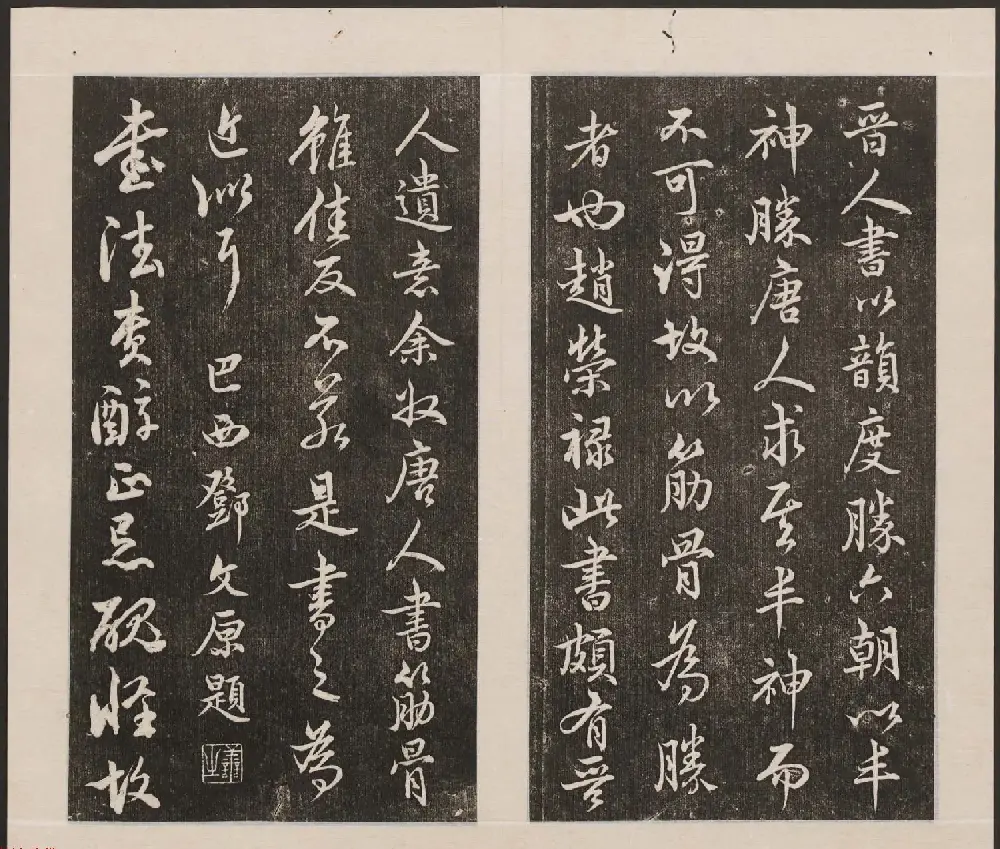 晋人書以韻度勝六朝以丰
神勝唐人求其丰神而
不可得故以筋骨為勝
者也趙榮禄此書頗有晉
人遺意余收唐人書筋骨
雖佳反不若是書之為
近似耳 巴西鄧文原題
書法貴醇正忌醜怪故